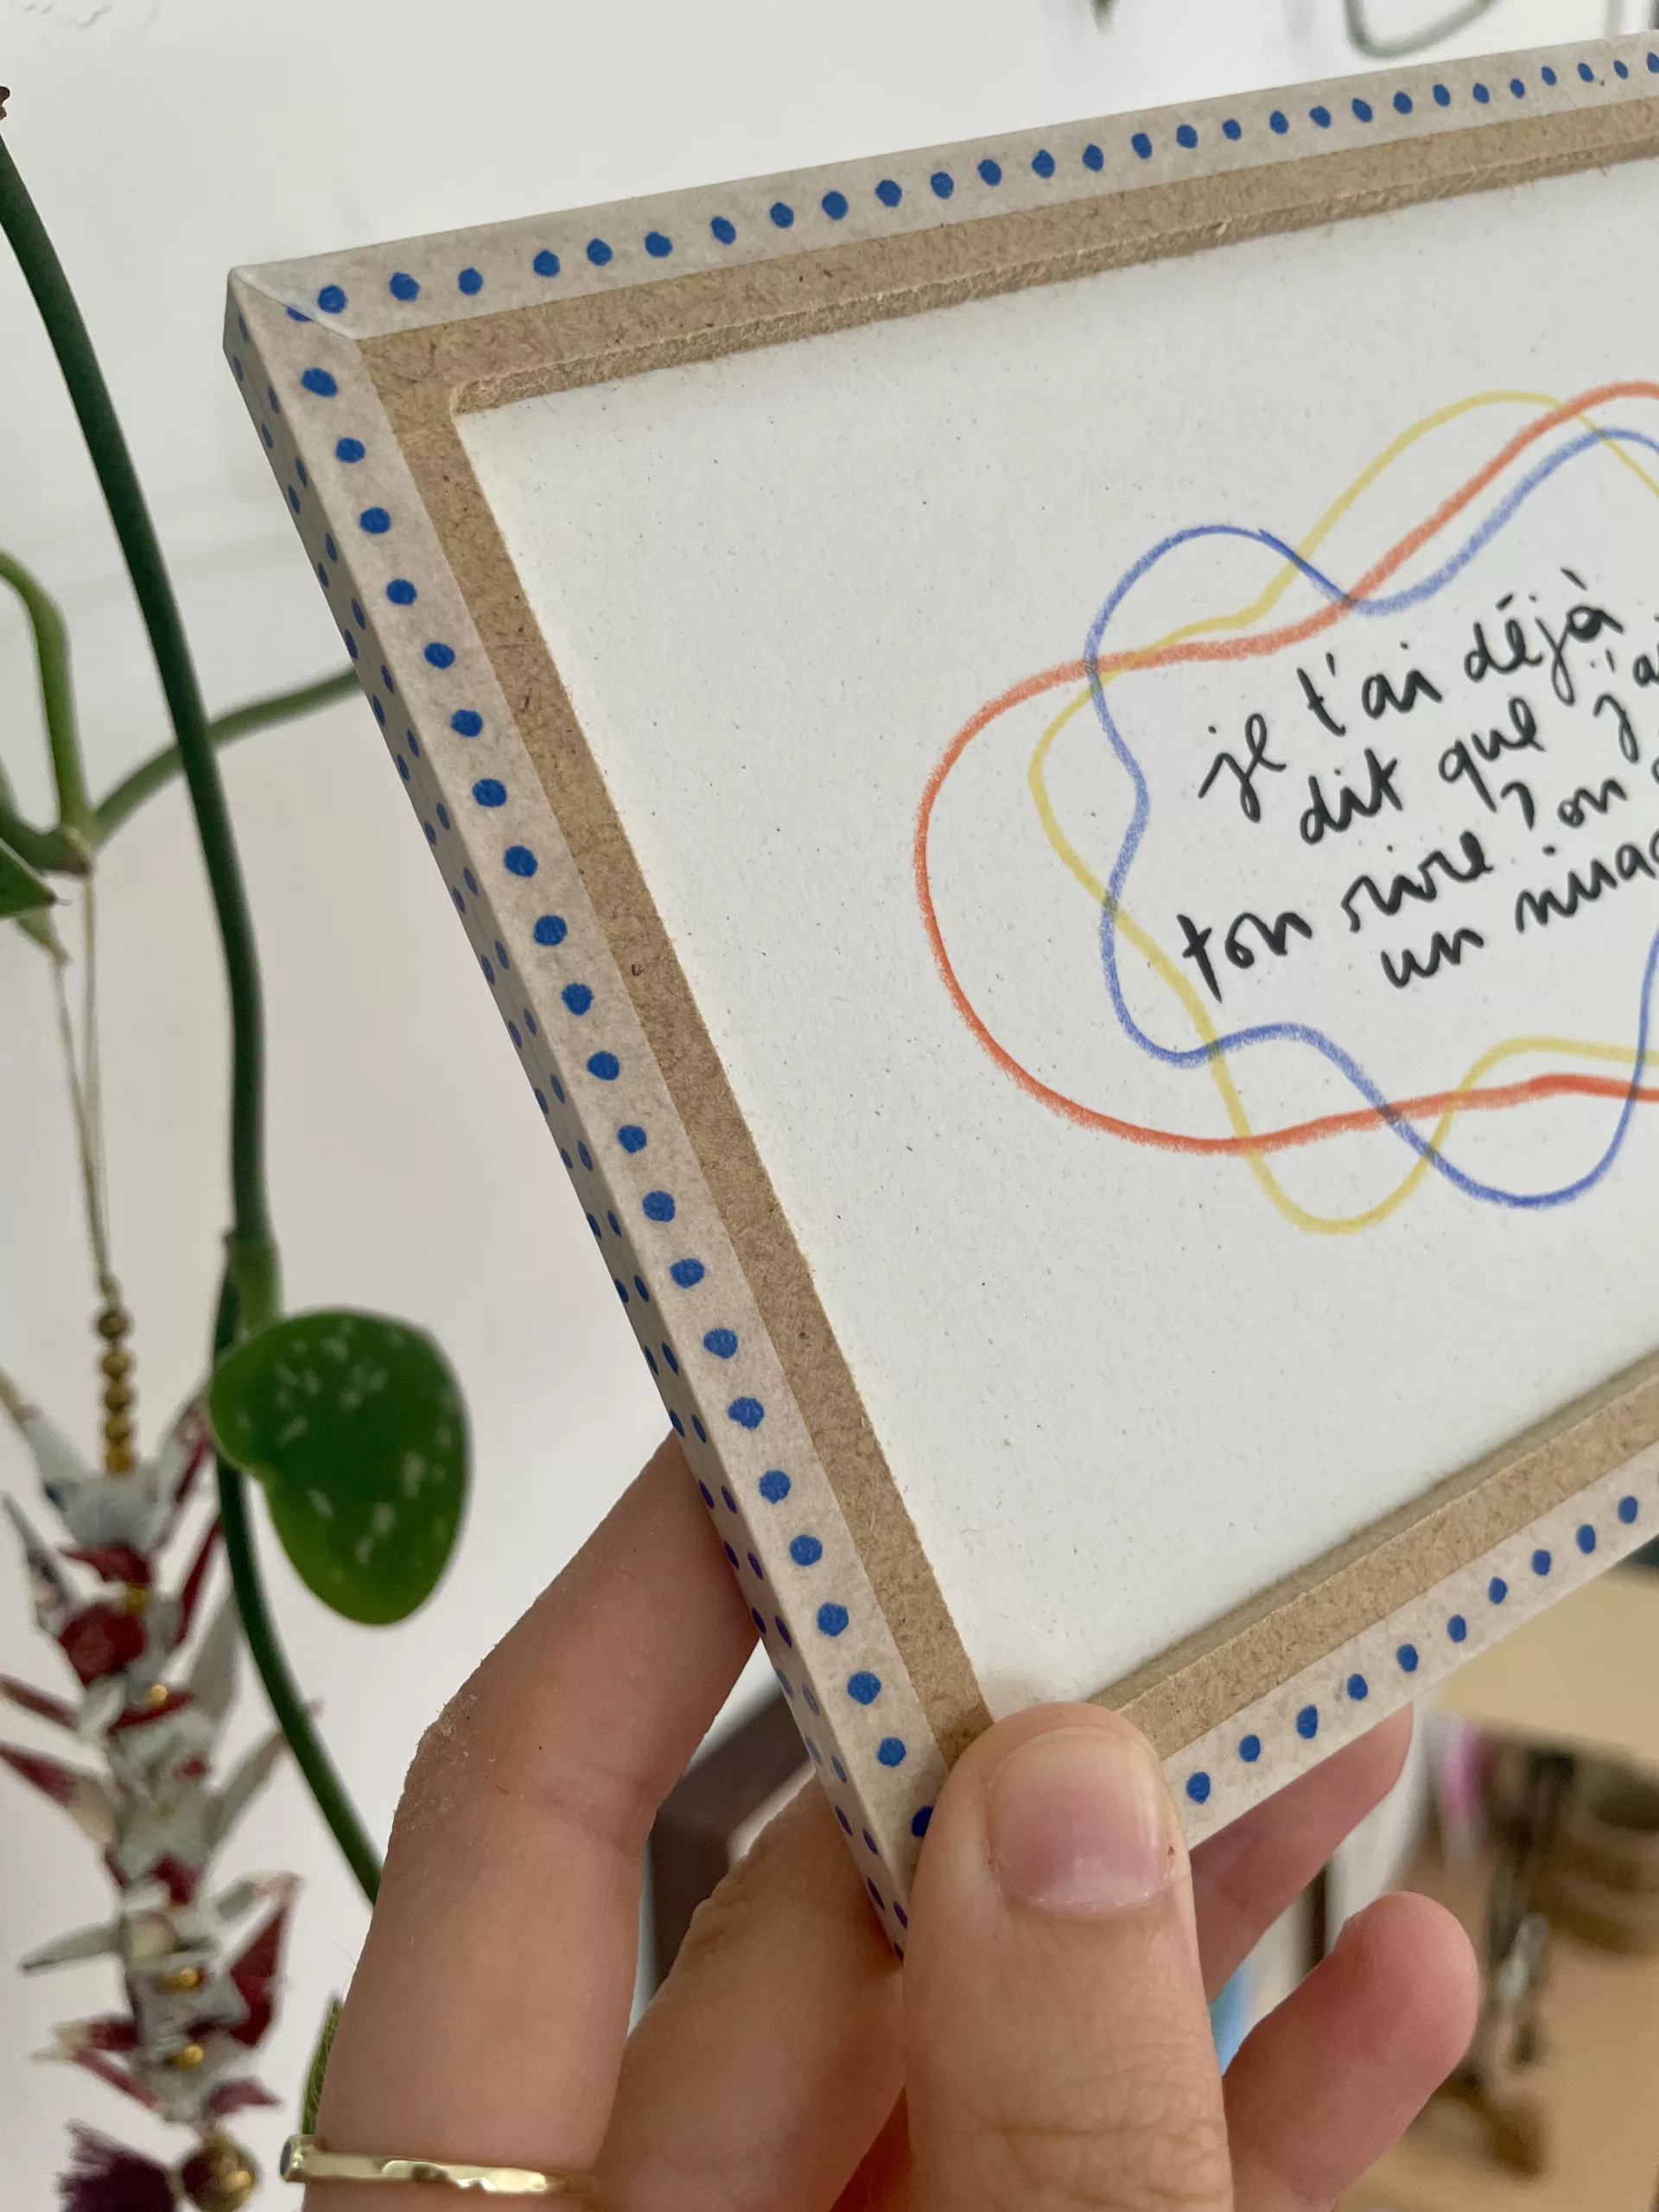 je t'ai déjà
dit que j'a
ton rire ? on
un nuag